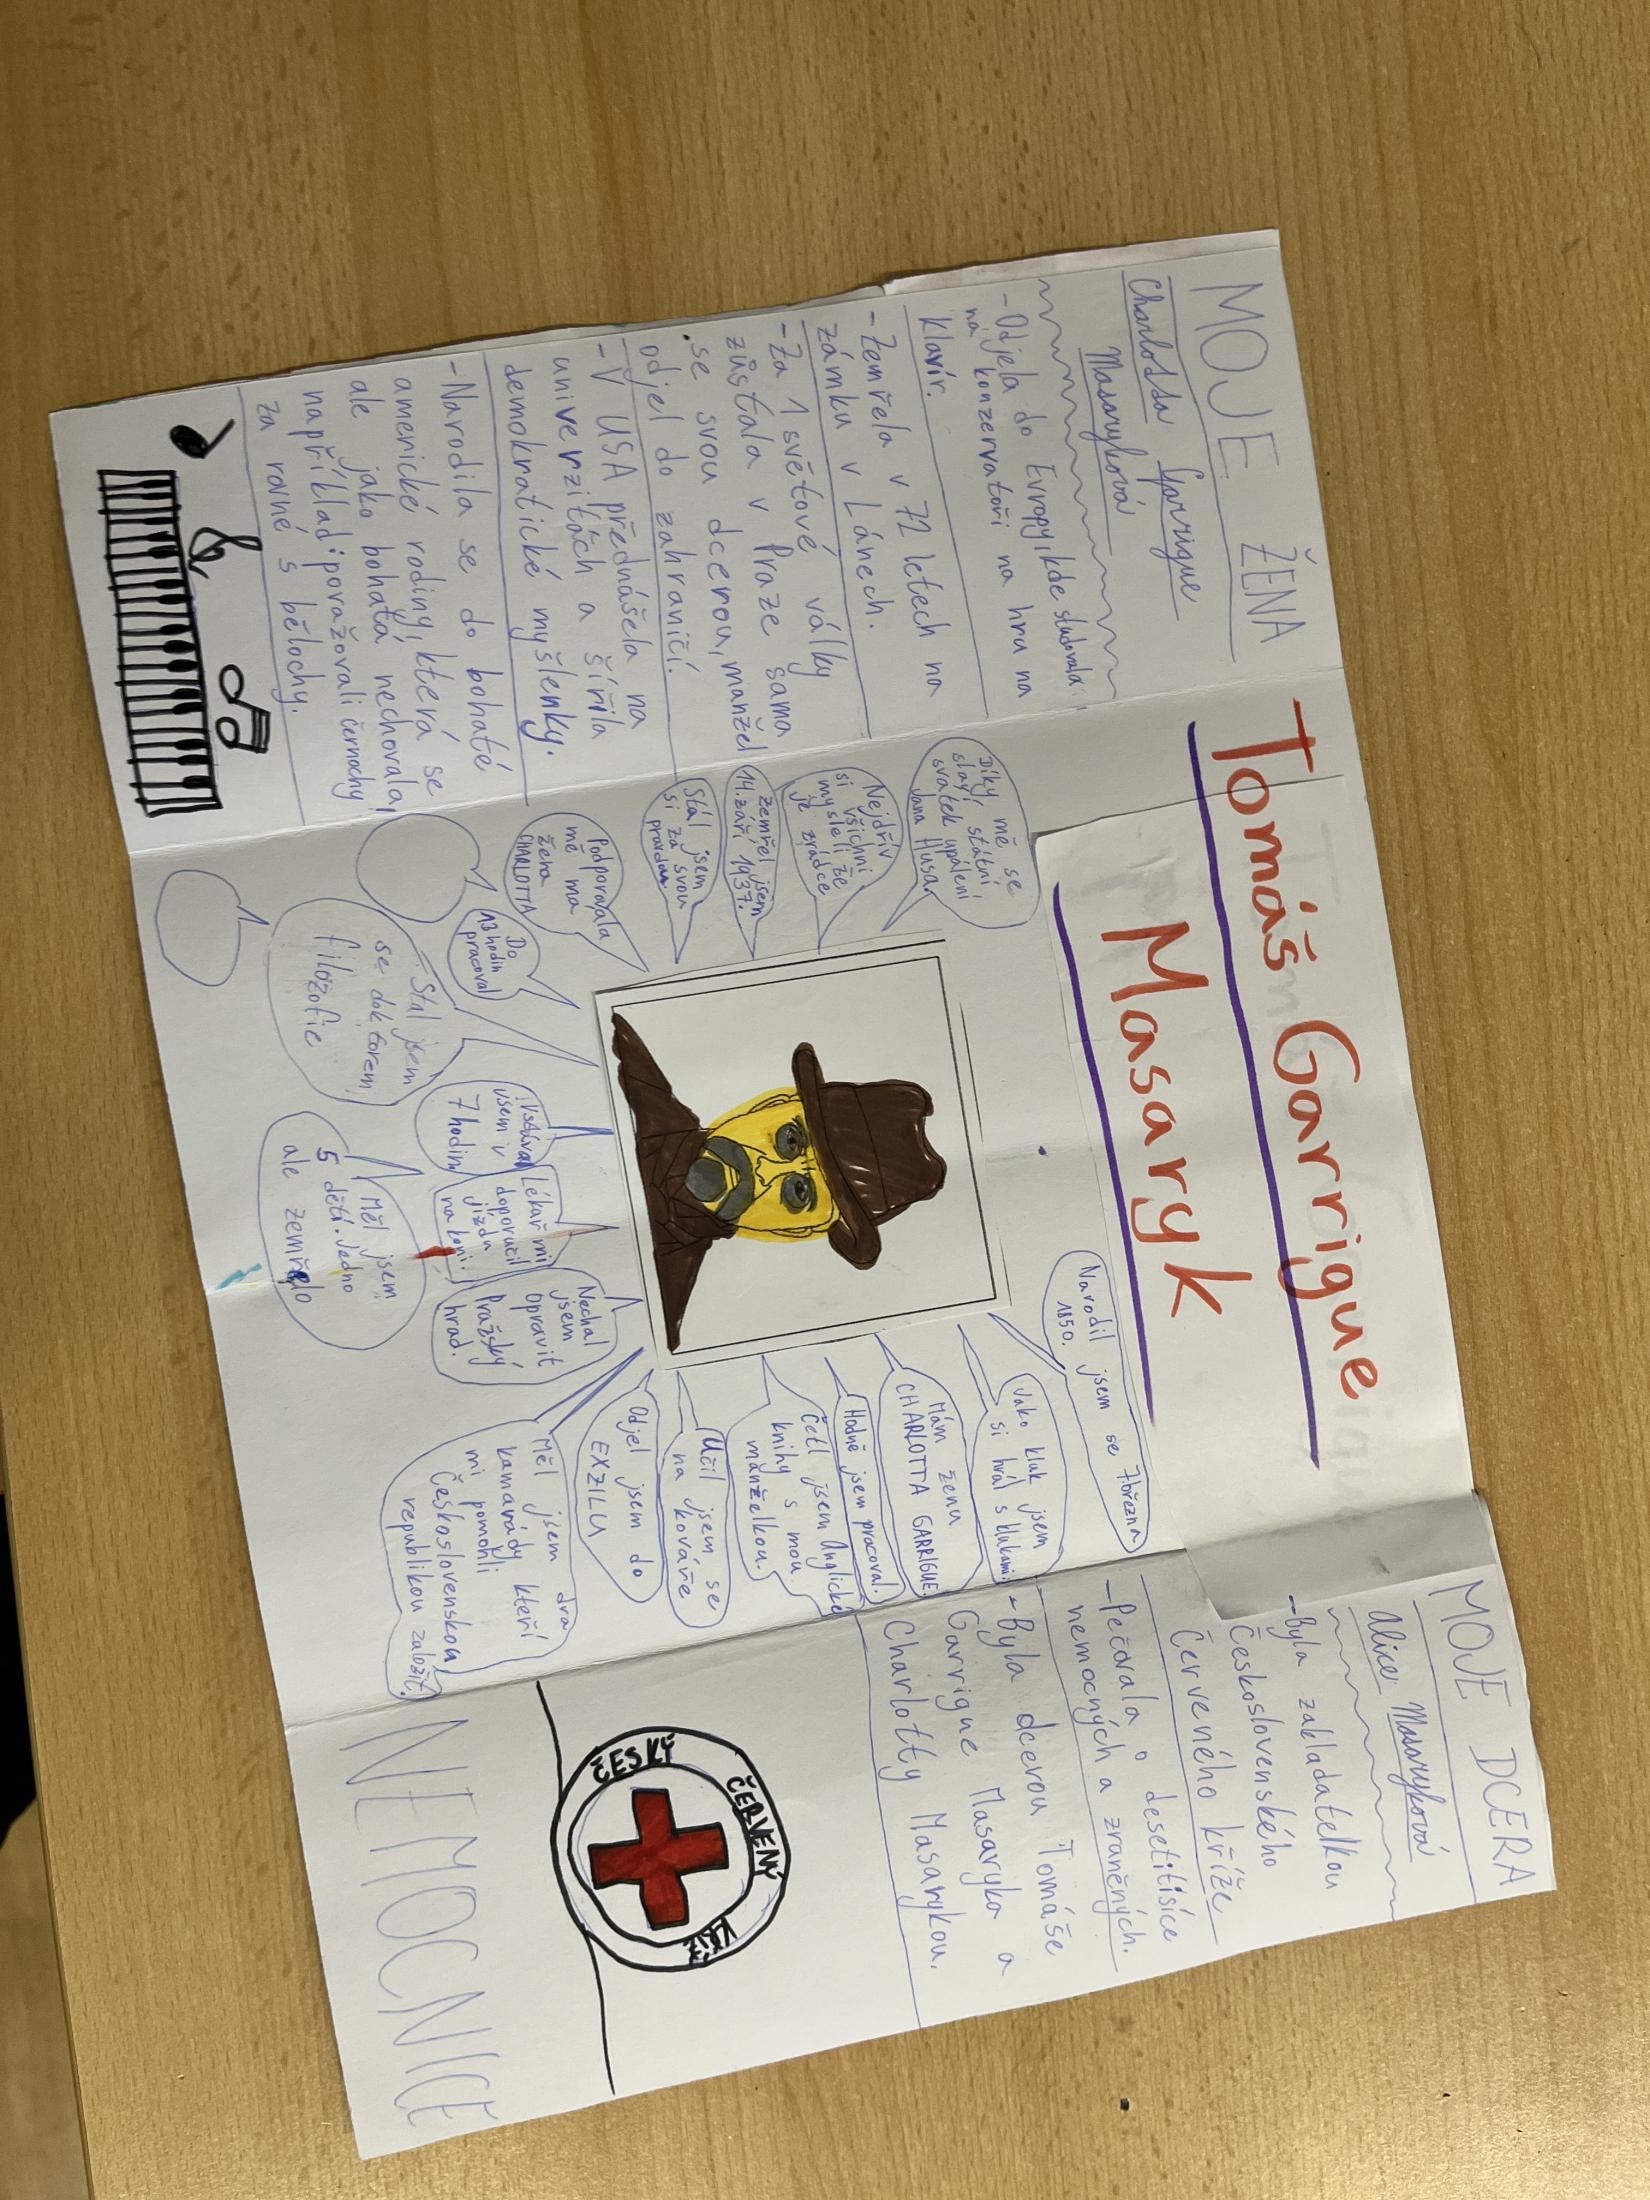 MOJE ŽENA
Charlotta Garrigue
Masaryková
-Odjela do Evropy, kde studovala
na konzervatoři na hru na
klavír.
-Zemřela v 72 letech na
zámku v Lánech.
-Za 1 světové války
zůstala v Praze sama
se svou dcerou, manžel
odjel do zahraničí.
-V USA přednášela na
univerzitách a šířila
demokratické myšlenky.
-Narodila se do bohaté
americké rodiny, která se
ale jako bohatá nechovala,
například považovali černochy
za rovné s bělochy.
Tomáš Garrigue
Masaryk
Díky mě se
slaví státní
svátek upálení
Jana Husa.
Nejdřív
si všichni
mysleli že
je zrádce
zemřel jsem
14. září 1937.
Stál jsem
si za svou
pravdou.
Podporovala
mě ma
žena
CHARLOTTA
Do
13 hodin
pracoval
Stal jsem
se doktorem
filozofie
Vstával
jsem v
7 hodin
Lékař mi
doporučil
jízdu
na koni.
Nechal
jsem
opravit
Pražský
hrad.
Měl jsem
5 dětí. Jedno
ale zemřelo
Narodil jsem se 7. března
1850.
Jako kluk jsem
si hrál s klukami.
Mám ženu
CHARLOTTA GARRIGUE.
Hodně jsem pracoval.
Četl jsem Anglické
knihy s mou
manželkou.
Učil jsem se
na kováře
Odjel jsem do
EXZILU
Měl jsem dva
kamarády kteří
mi pomohli
Československou
republikou založit.
MOJE DCERA
Alice Masaryková
-Byla zakladatelkou
Československého
Červeného kříže
-Pečovala o desetitisíce
nemocných a zraněných.
-Byla dcerou Tomáše
Garrigue Masaryka a
Charlotty Masarykou.
ČESKÝ ČERVENÝ KŘÍŽ
NEMOCNICE